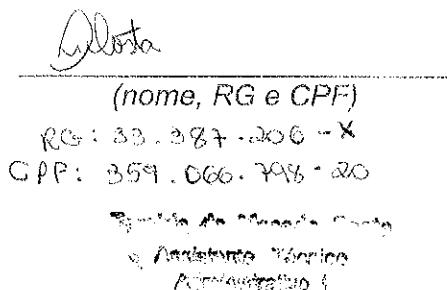 (nome, RG e CPF)
RG: 33.387.206-X
CPF: 359.066.798-20
Assistente Técnico
Administrativo I